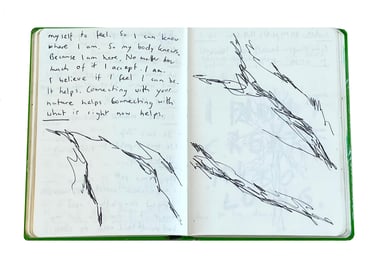 myself to feel. So I can know
where I am. So my body knows.
Because I am here. No matter how
much of it I accept. I am.
I believe if I feel I can be.
It helps. Connecting with your
nature helps. Connecting with
what is right now helps.